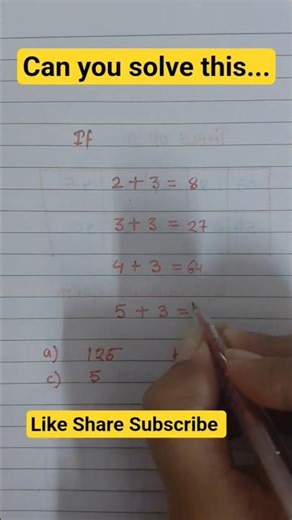 Can you solve this...
If
2 + 3 = 8
3 + 3 = 27
4 + 3 = 64
5 + 3 =
a) 125
c) 5
Like Share Subscribe